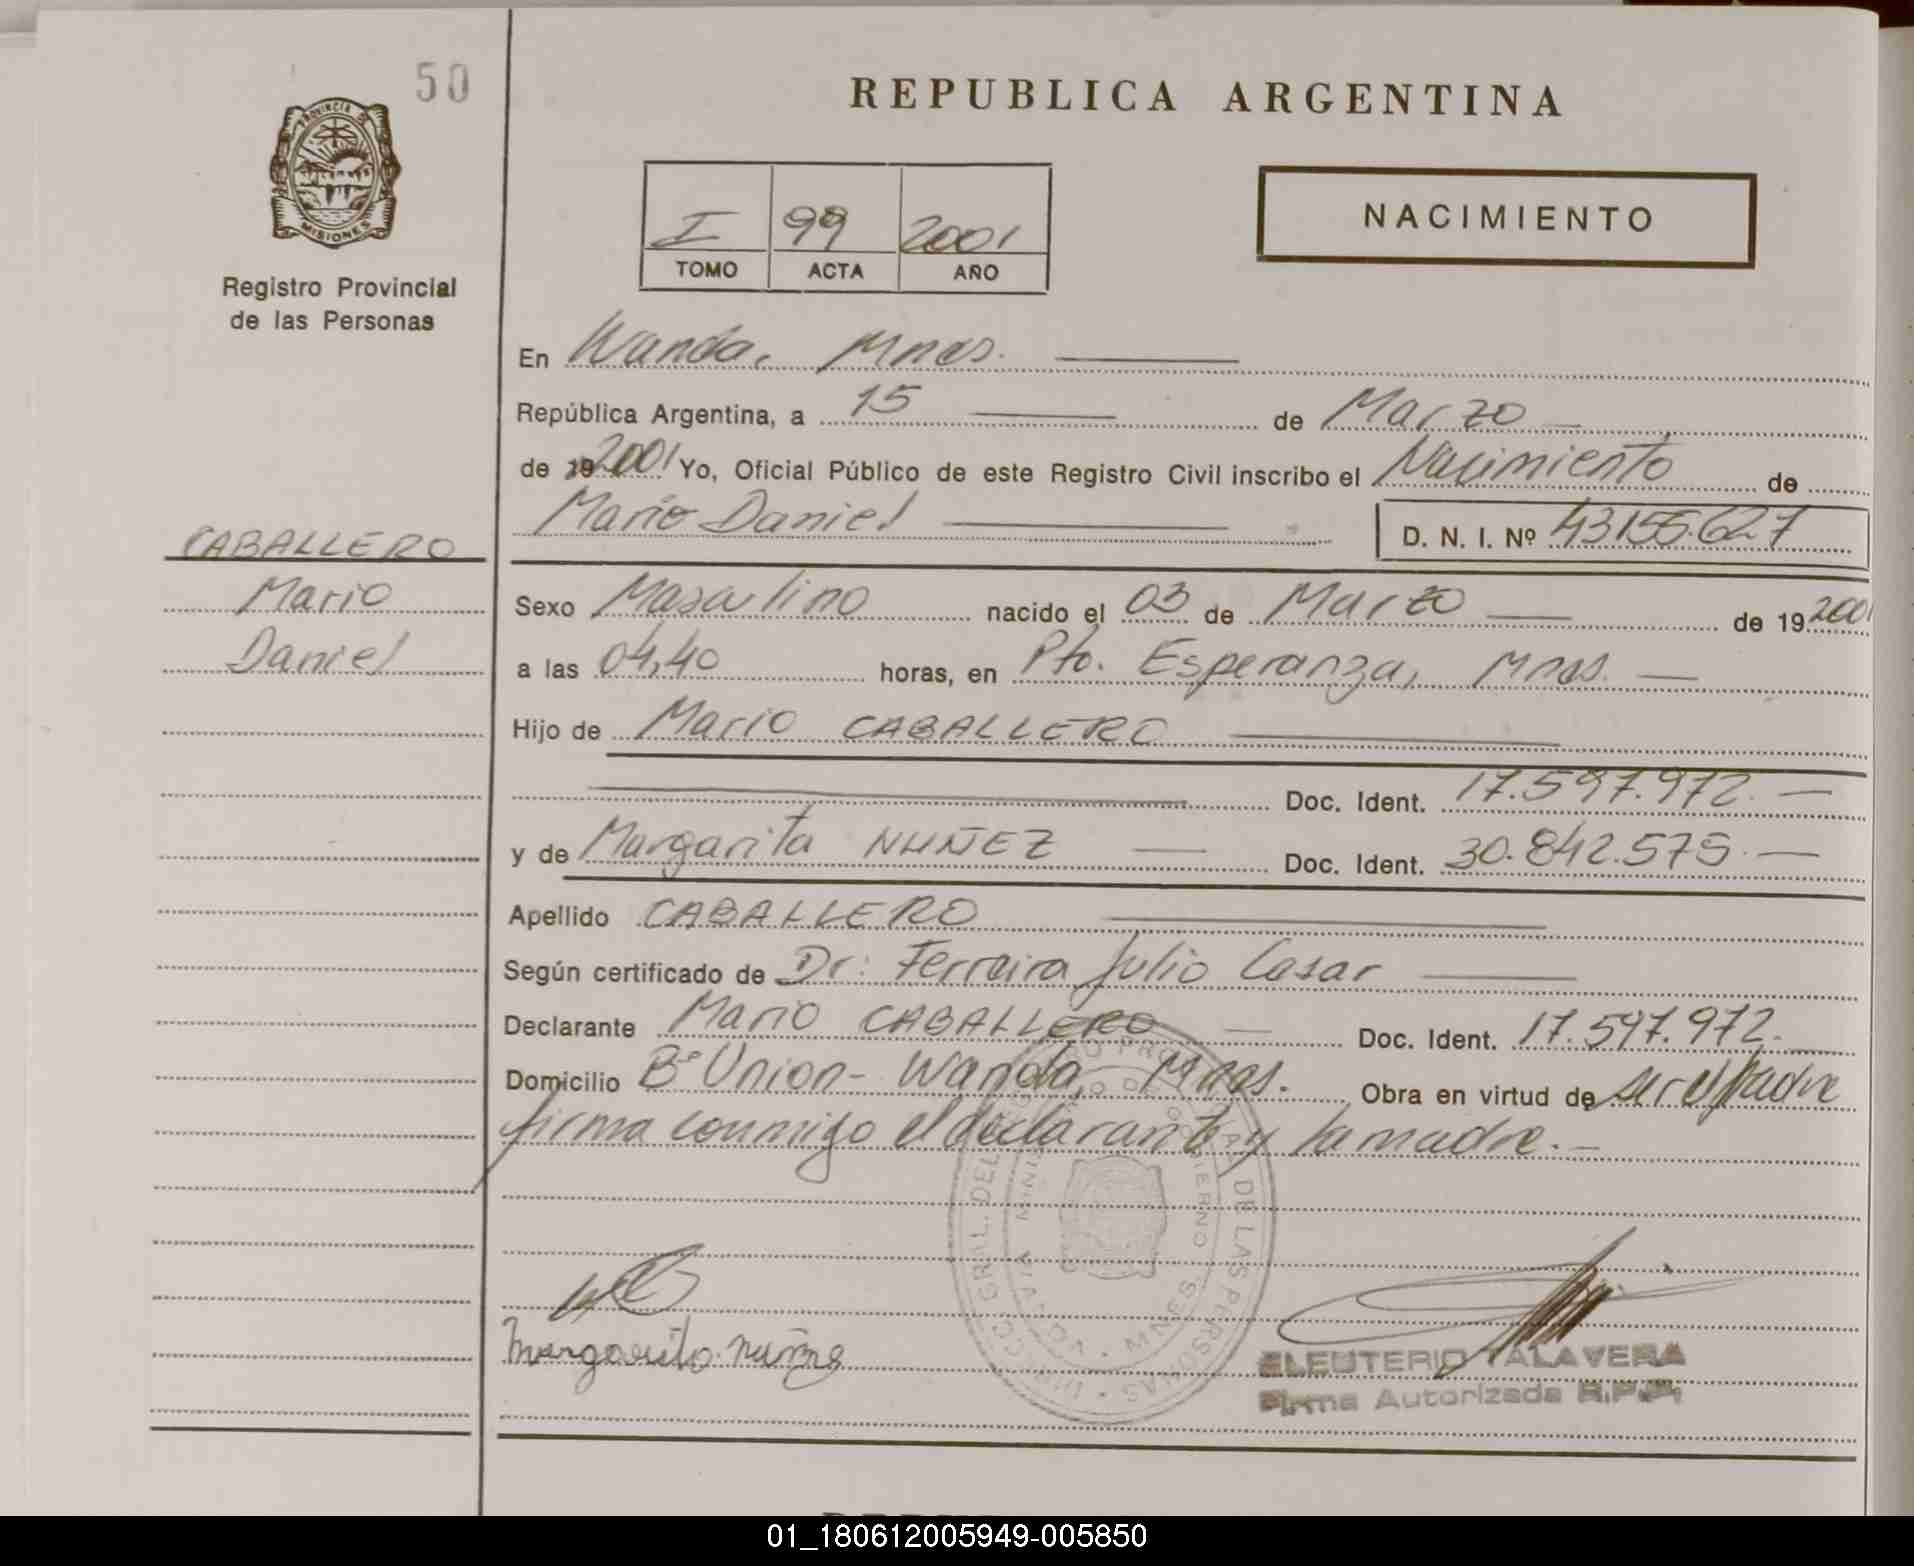 50
PROVINCIA DE
MISIONES
Registro Provincial
de las Personas
CABALLERO
Mario
Daniel
REPUBLICA ARGENTINA
I 99 2001
TOMO ACTA AÑO
NACIMIENTO
En Wanda, Mnes.
República Argentina, a 15 de Marzo
de 19 2001 Yo, Oficial Público de este Registro Civil inscribo el Nacimiento de
Mario Daniel D. N. I. Nº 43155.627
Sexo Masculino nacido el 03 de Marzo de 19 2001
a las 04,40 horas, en Pto. Esperanza, Mnes.
Hijo de Mario CABALLERO
Doc. Ident. 17.597.972.
y de Margarita NUÑEZ Doc. Ident. 30.842.575.
Apellido CABALLERO
Según certificado de Dr: Ferreira Julio Cesar
Declarante Mario CABALLERO Doc. Ident. 17.597.972.
Domicilio Bº Union - Wanda, Mnes. Obra en virtud de ser el padre
firma conmigo el declarante y la madre.
Margarita nuñes
ELEUTERIO TALAVERA
Firma Autorizada R.P.P.
01_180612005949-005850